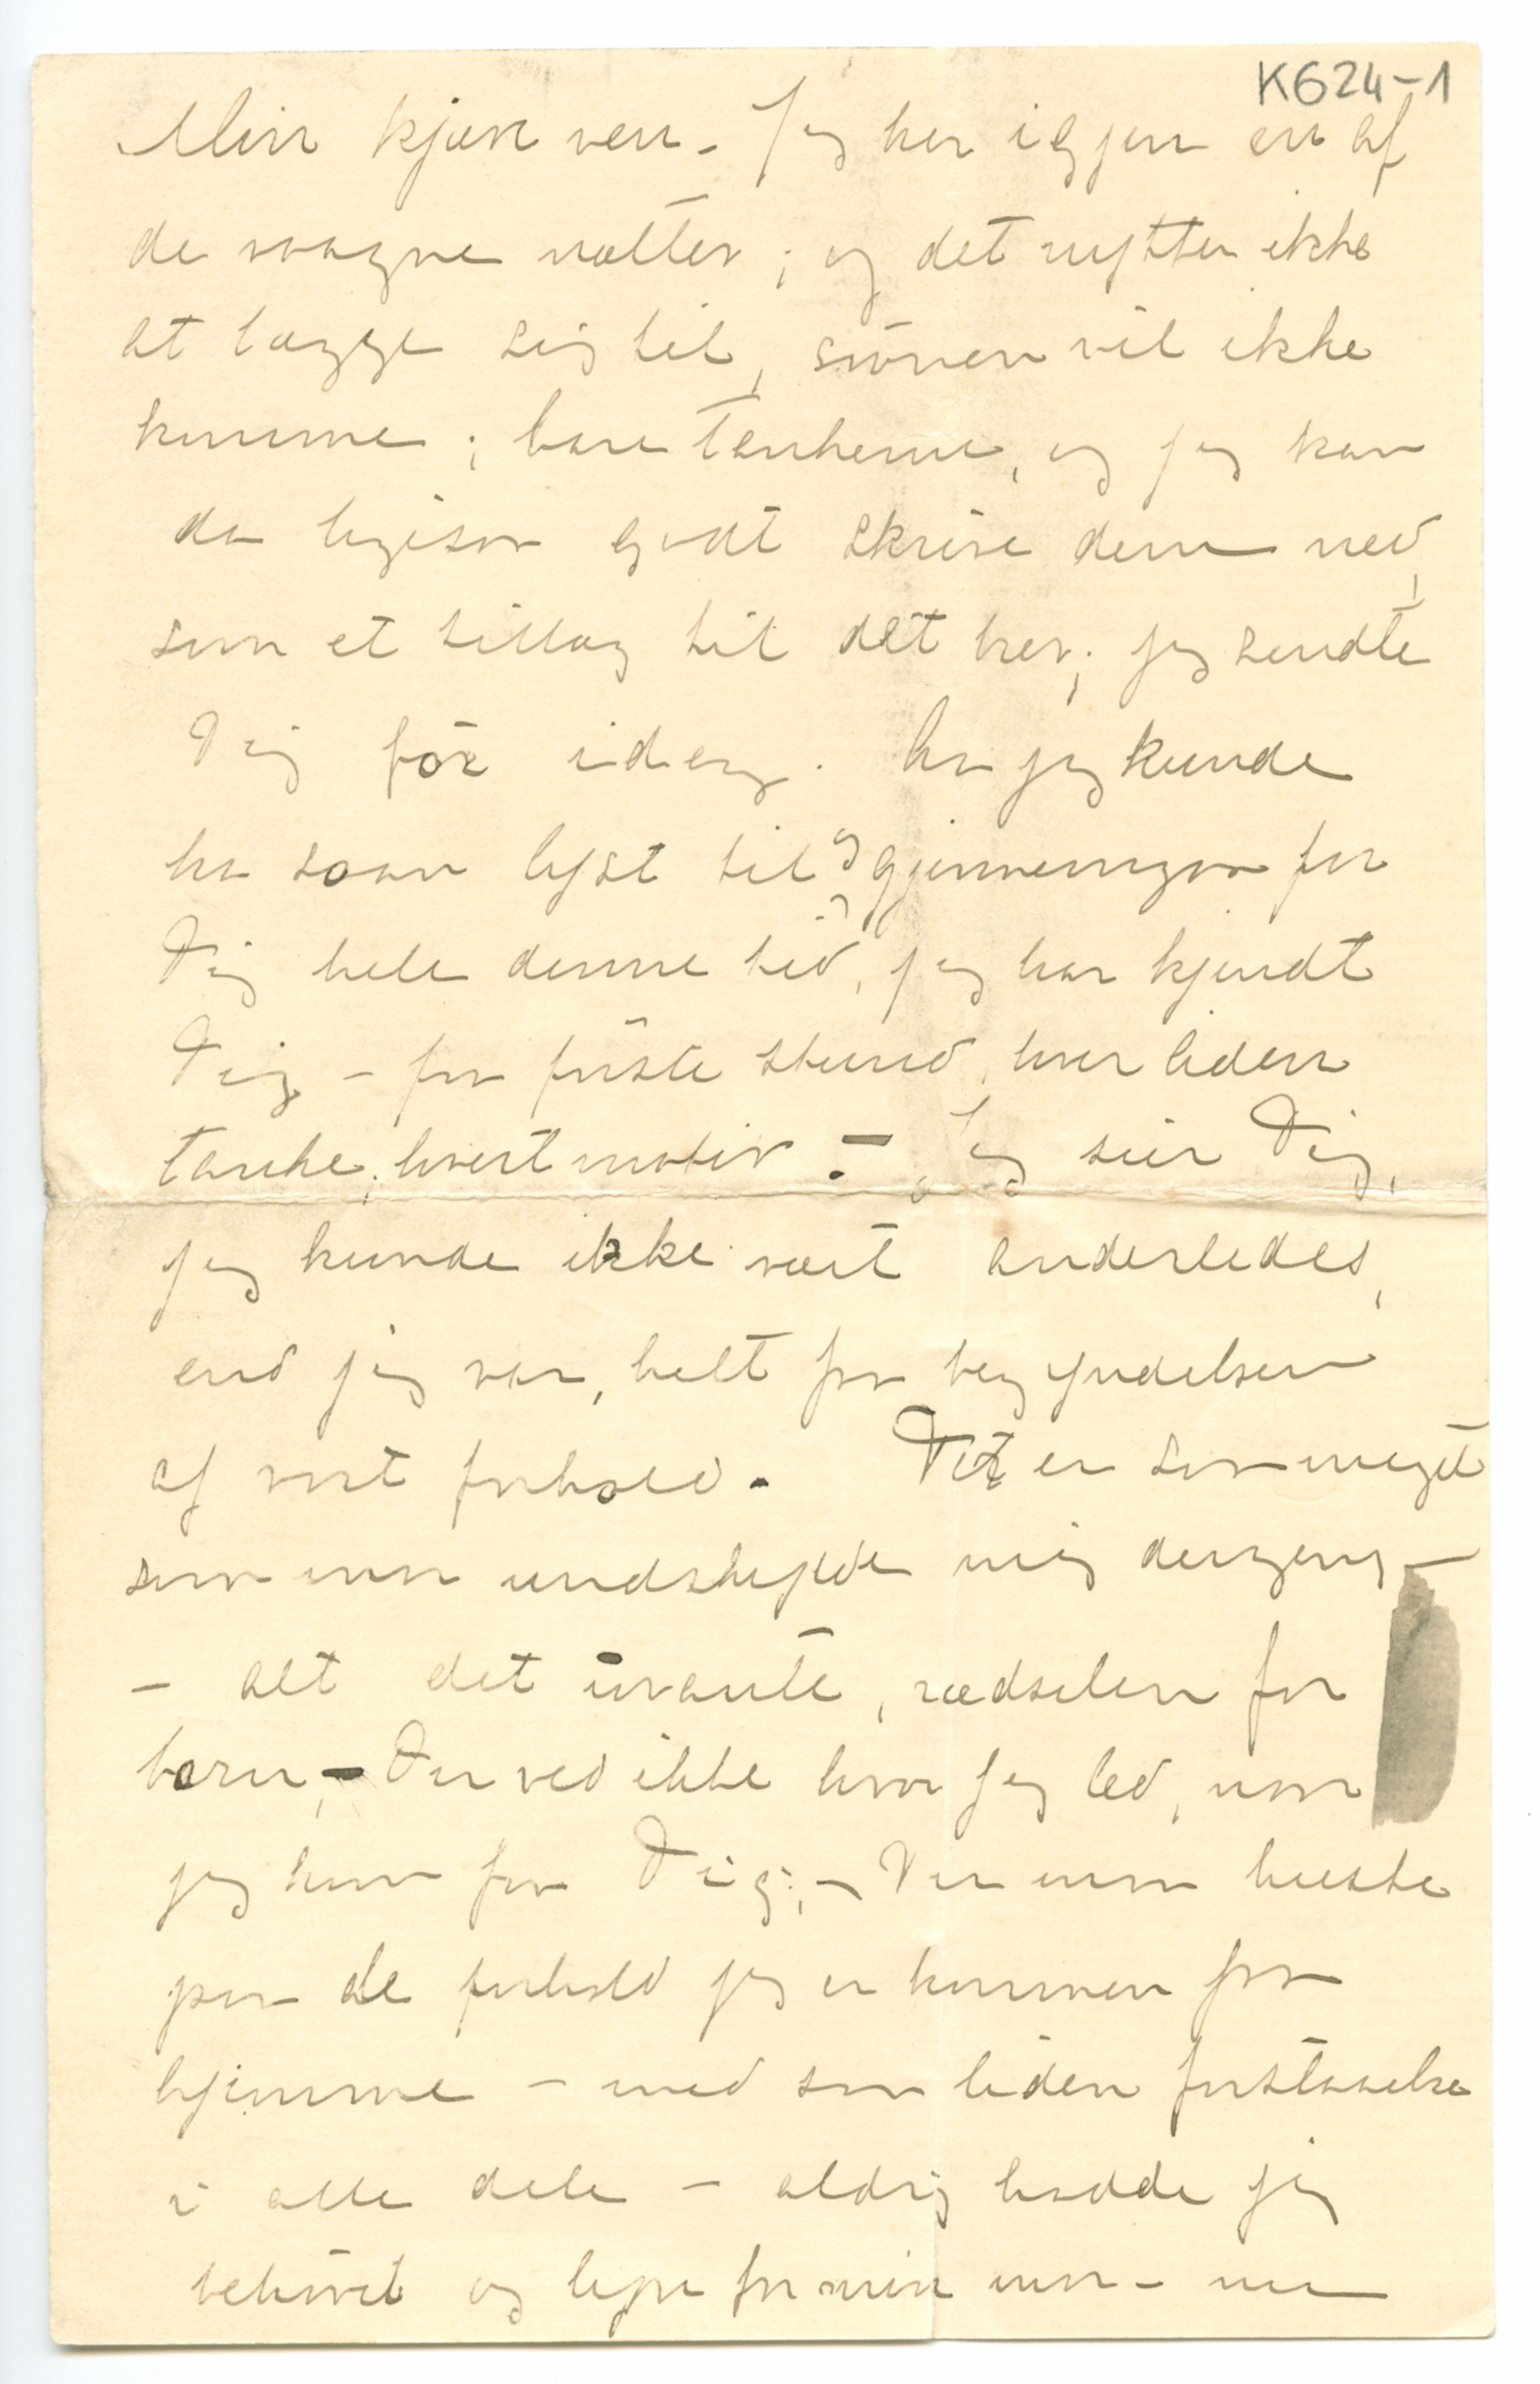 K624-1
Min kjære ven. Jeg har igjen en af
de vaagne nætter; og det nytter ikke
at lægge sig til, søvnen vil ikke
komme; bare tankerne, og jeg kan
da ligesaa godt skrive dem ned,
som et tillæg til det brev; jeg sendte
Dig før idag. Aa jeg kunde
ha saan lyst til og gjennemgaa for
Dig hele denne tid, jeg har kjendt
Dig – fra første stund, hver liden
tanke, hvert motiv. – Jeg sier Dig,
jeg kunde ikke vært anderledes,
end jeg var, helt fra begyndelsen
af vort forhold. Det er saa meget
som maa undskylde mig dengang –
– alt det uvante, rædselen for
barn, – Du ved ikke hvor jeg led, naar
jeg kom fra Dig; – Du maa huske
paa de forhold jeg er kommen fra
hjemme – med saa liden forstaaelse
i alle dele – aldrig hadde jeg
behøvet og lyve for min mor – nu